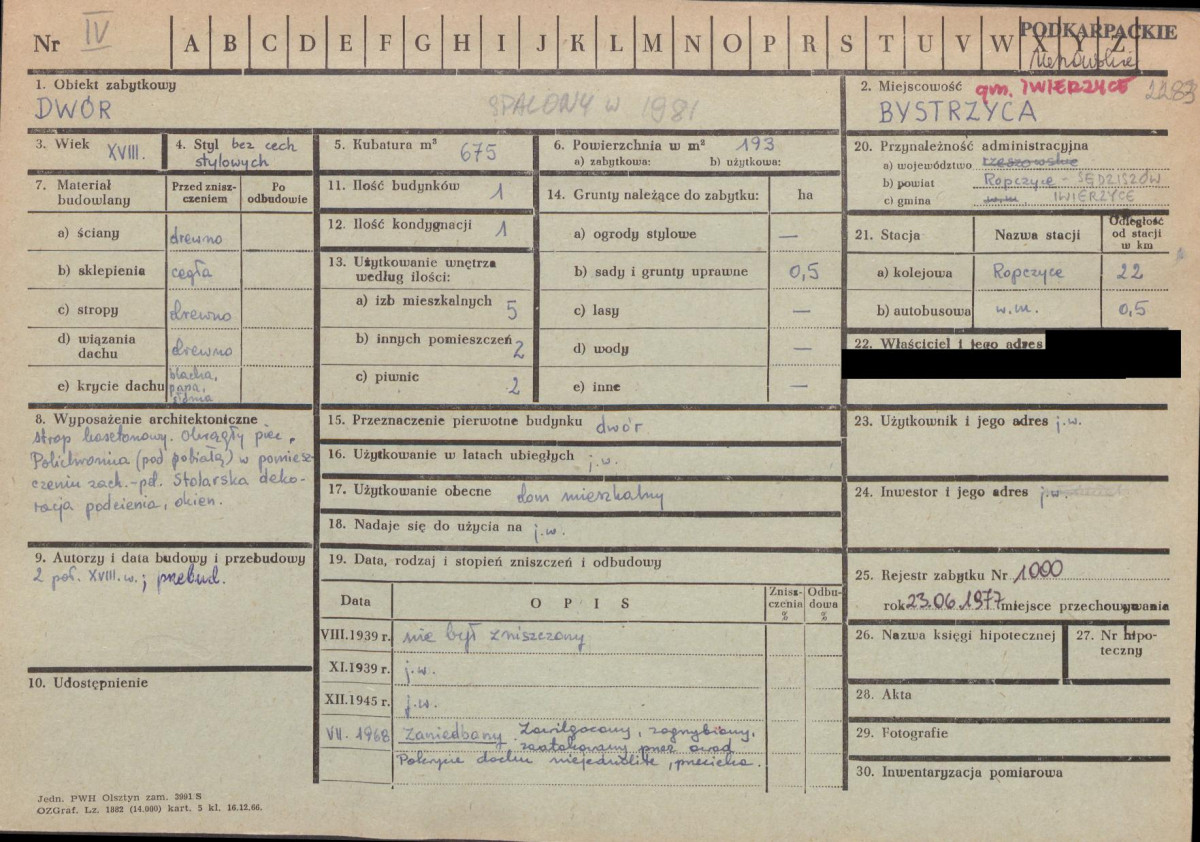 Nr IV A B C D E F G H I J K L M N O P R S T U V W X Y Z
PODKARPACKIE
1. Obiekt zabytkowy
DWÓR
SPALONY W 1981
2. Miejscowość gm. IWIERZYCE 2283
BYSTRZYCA
3. Wiek XVIII.
4. Styl bez cech
stylowych
5. Kubatura m³ 675
6. Powierzchnia w m² 193
a) zabytkowa: b) użytkowa:
20. Przynależność administracyjna
a) województwo rzeszowskie
b) powiat Ropczyce - SĘDZISZÓW
c) gmina w.m. IWIERZYCE
7. Materiał
budowlany
Przed znisz-
czeniem
Po
odbudowie
a) ściany drewno
b) sklepienia cegła
c) stropy drewno
d) wiązania
dachu drewno
e) krycie dachu blacha,
papa,
słoma
11. Ilość budynków 1
12. Ilość kondygnacji 1
13. Użytkowanie wnętrza
według ilości:
a) izb mieszkalnych 5
b) innych pomieszczeń 2
c) piwnic 2
14. Grunty należące do zabytku: ha
a) ogrody stylowe —
b) sady i grunty uprawne 0,5
c) lasy —
d) wody —
e) inne —
21. Stacja Nazwa stacji Odległość
od stacji
w km
a) kolejowa Ropczyce 22
b) autobusowa w.m. 0,5
22. Właściciel i jego adres
8. Wyposażenie architektoniczne
strop kasetonowy. Okrągły piec.
Polichromia (pod pobiałą) w pomiesz-
czeniu zach.-pd. Stolarska deko-
racja podcienia, okien.
9. Autorzy i data budowy i przebudowy
2 poł. XVIII. w.; przebud.
10. Udostępnienie
15. Przeznaczenie pierwotne budynku dwór
16. Użytkowanie w latach ubiegłych j.w.
17. Użytkowanie obecne dom mieszkalny
18. Nadaje się do użycia na j.w.
19. Data, rodzaj i stopień zniszczeń i odbudowy
Data O P I S Znisz-
czenia
% Odbu-
dowa
%
VIII.1939 r. nie był zniszczony
XI.1939 r. j.w.
XII.1945 r. j.w.
VII. 1968 Zaniedbany. Zawilgocony, zagrzybiony,
zaatakowany przez owad
Pokrycie dachu niejednolite, przecieka.
23. Użytkownik i jego adres j.w.
24. Inwestor i jego adres j.w.
25. Rejestr zabytku Nr 1000
rok 23.06.1977 miejsce przechowywania
26. Nazwa księgi hipotecznej
27. Nr hipo-
teczny
28. Akta
29. Fotografie
30. Inwentaryzacja pomiarowa
Jedn. PWH Olsztyn zam. 3991 S
OZGraf. Lz. 1882 (14.000) kart. 5 kl. 16.12.66.